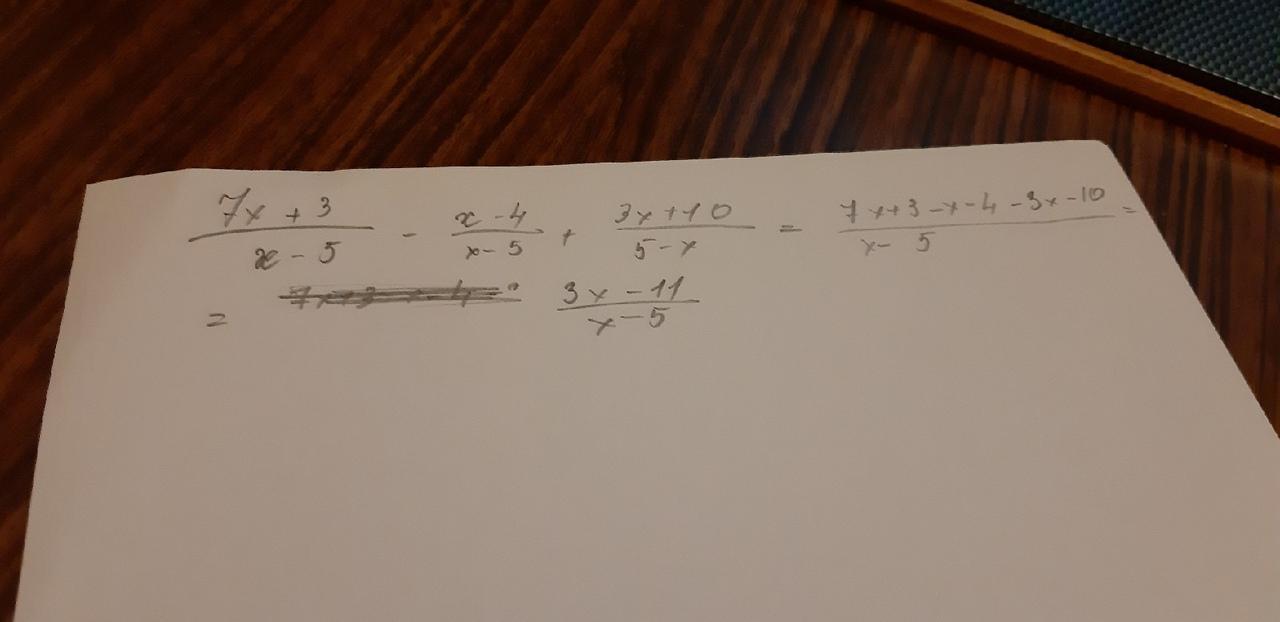 7x + 3 / x - 5 - x - 4 / x - 5 + 3x + 10 / 5 - x = 7x + 3 - x - 4 - 3x - 10 / x - 5 =
= 3x - 11 / x - 5